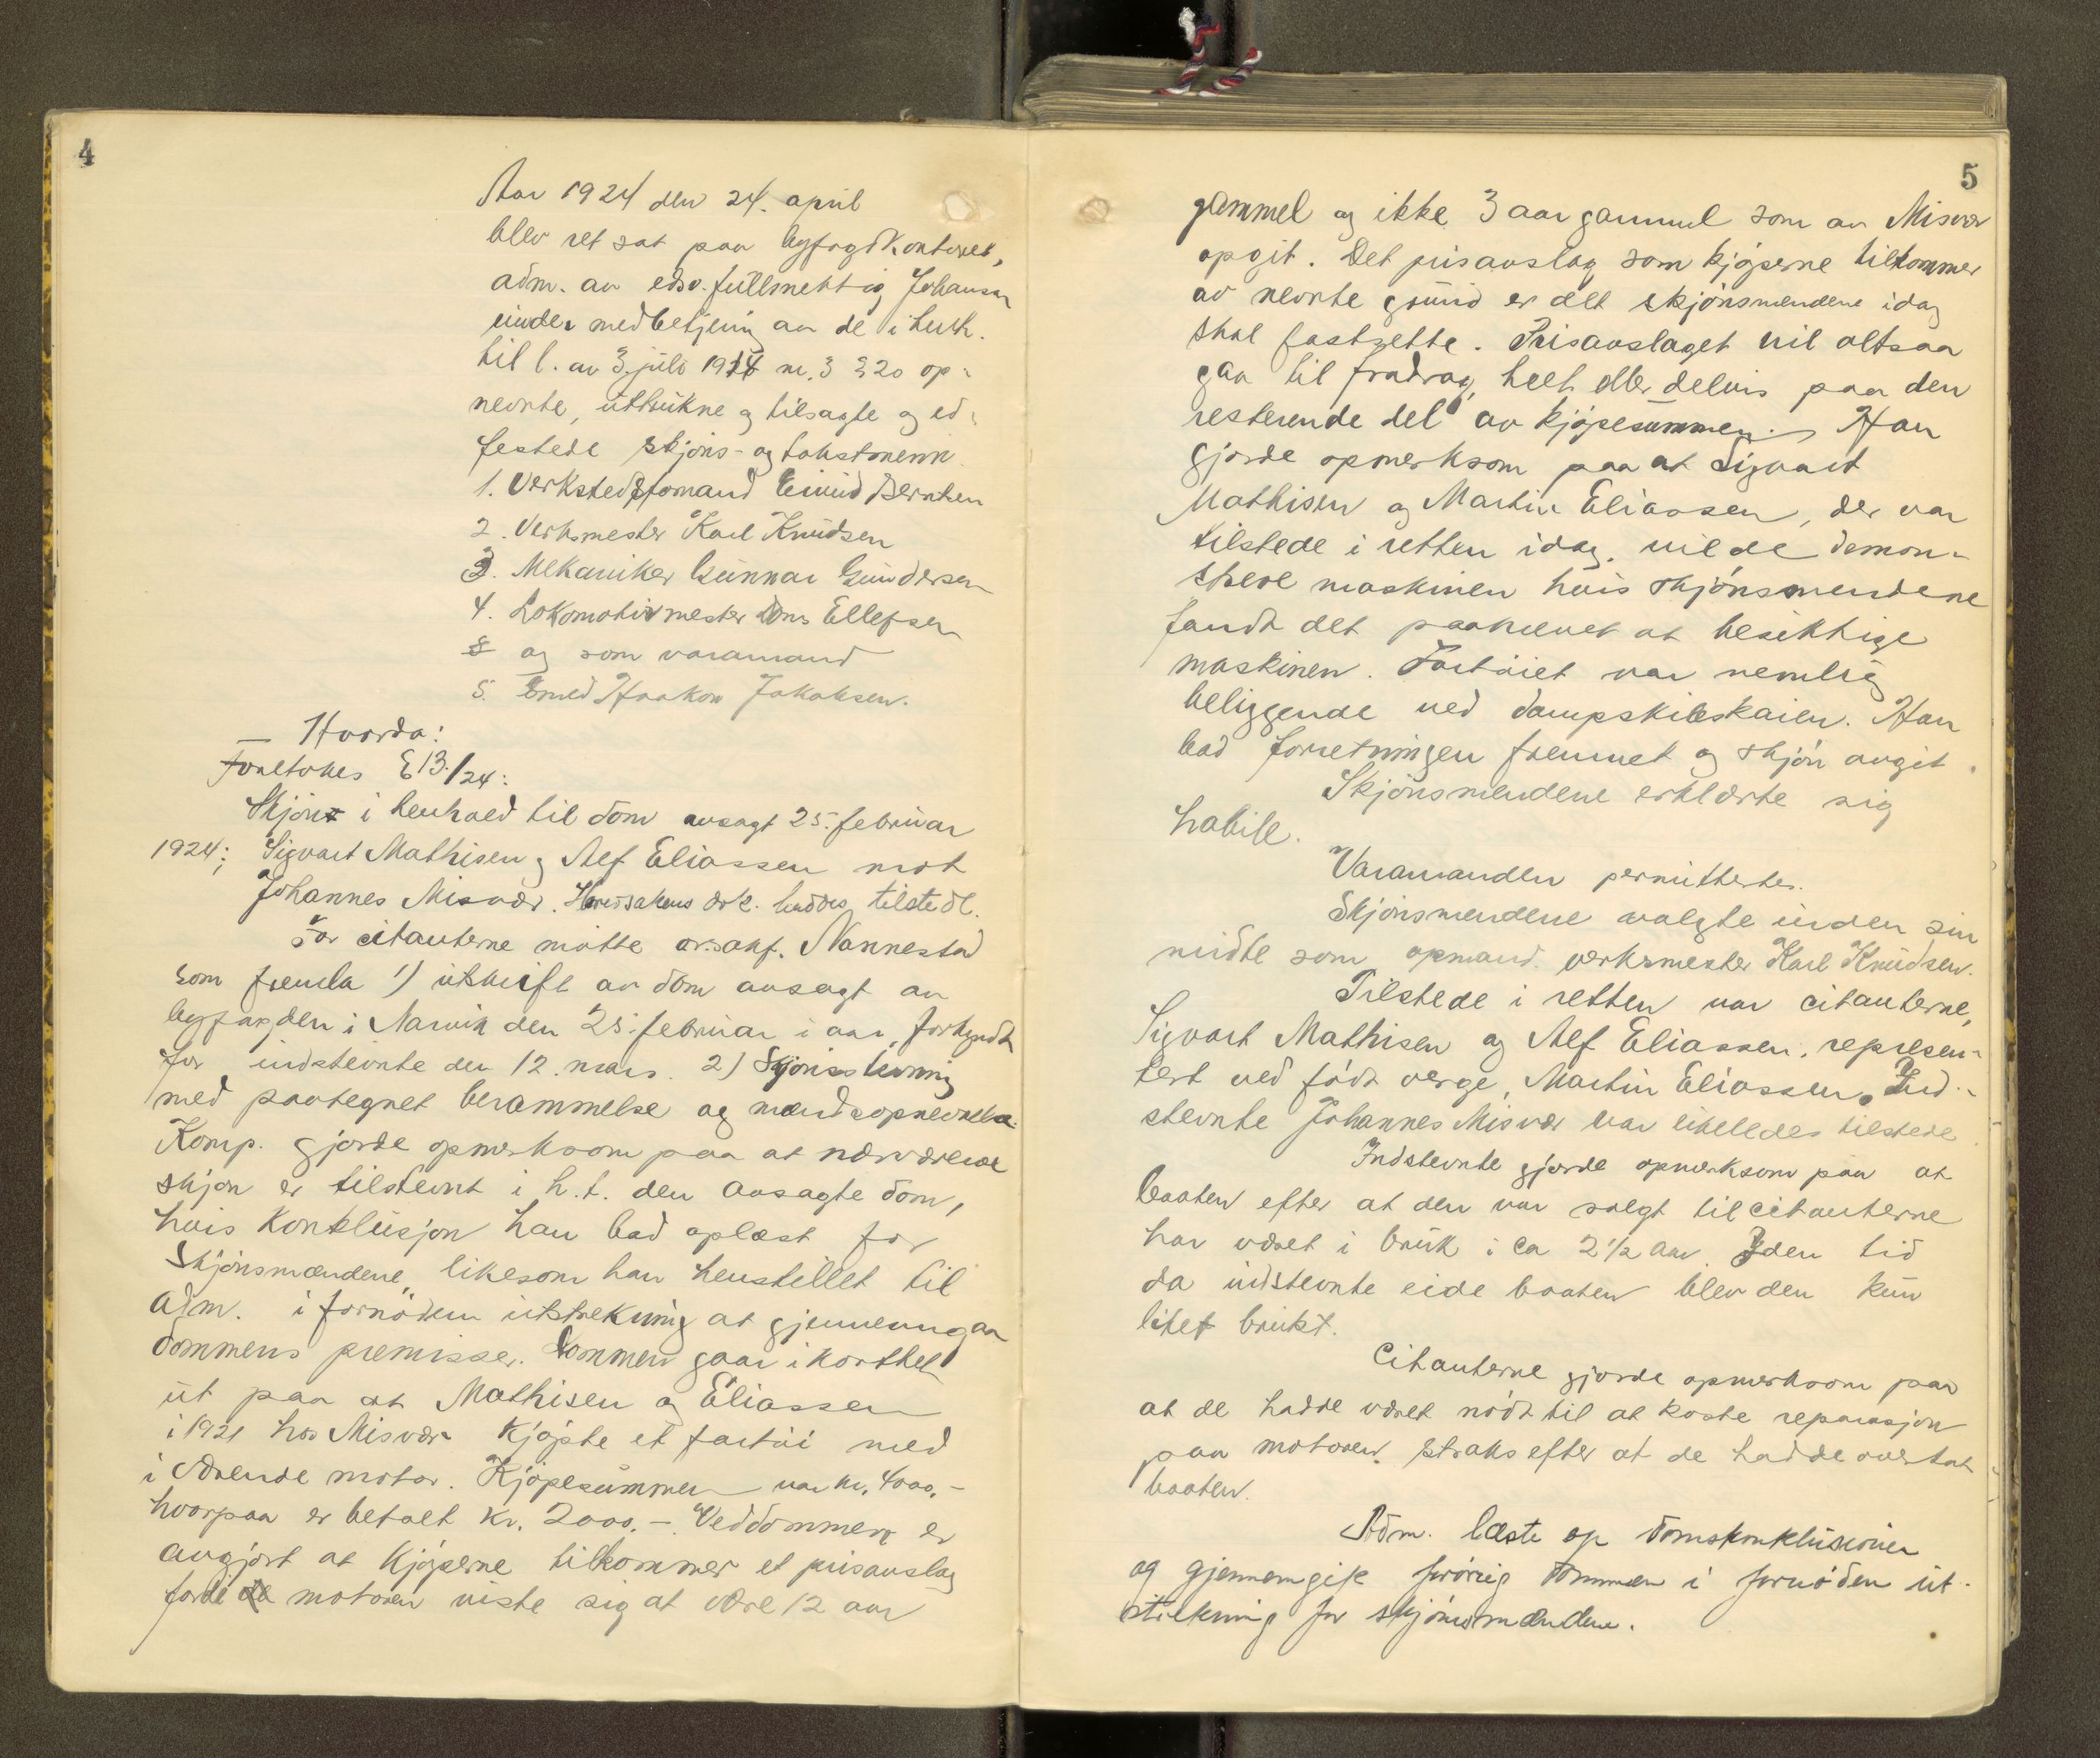 4
Aar 1924 den 24. april
blev ret sat paa byfogdkontoret,
adm. av edsv. fullmektig Johansen
under medbetjening av de i henh.
til l. av 3. juli 1914 nr. 3 § 20 op-
nevnte, uttrukne og tilsagte og ed-
festede skjøns- og takstmenn
1. Verkstedsfomand Eivind Berntsen
2. Verksmester Karl Knudsen
3. Mekaniker Gunnar Gundersen
4. Lokomotivmester Jons Ellefsen
og som varamand
5. Smed Haakon Jakobsen.
— Hvorda:
Foretokes E 13/24:
Skjøn i henhold til dom avsagt 25. februar
1924; Sigvart Mathisen og Alf Eliassen mot
Johannes Misvær. Hovedsakens dok. haddes tilstede.
For citanterne møtte o.r.sakf. Nannestad
som fremla 1) utskrift av dom avsagt av
byfogden i Narvik den 25. februar i aar, forkyndt
for indstevnte den 12. mars. 2) Skjønsstevning
med paategnet berammelse og mændsopnevnelse.
Komp. gjorde opmerksom paa at nærværende
skjøn er tilstevnt i h.t. den avsagte dom,
hvis konklusjon han bad oplæst for
Skjønsmændene, likesom han henstillet til
adm. i fornøden utstrekning at gjennemgaa
dommens premisser. Dommen gaar i korthet
ut paa at Mathisen og Eliassen
i 1921 hos Misvær kjøpte et fartøi med
i værende motor. Kjøpesummen var kr. 4000.-
hvorpaa er betalt kr. 2000.-. Ved dommen er
avgjort at kjøperne tilkommer et prisavslag
fordi motoren viste sig at være 12 aar
5
gammel og ikke 3 aar gammel som av Misvær
opgit. Det prisavslag som kjøperne tilkommer
av nevnte grund er det skjønsmendene idag
skal fastsette. Prisavslaget vil altsaa
gaa til fradrag, helt eller delvis paa den
resterende del av kjøpesummen. Han
gjorde opmerksom paa at Sigvart
Mathisen og Martin Eliassen, der var
tilstede i retten idag, vilde demon-
stere maskinen hvis skjønsmendene
fandt det paakrevet at besiktige
maskinen. Fartøiet var nemlig
beliggende ved dampskibskaien. Han
bad forretningen fremmet og skjøn avgit.
Skjønsmendene erklærte sig
habile.
Varamanden permittertes.
Skjønsmendene valgte inden sin
midte som opmand verksmester Karl Knudsen.
Tilstede i retten var citanterne,
Sigvart Mathisen og Alf Eliassen, represen-
tert ved født verge, Martin Eliassen. Ind-
stevnte Johannes Misvær var likeledes tilstede.
Indstevnte gjorde opmerksom paa at
baaten efter at den var solgt til citanterne
har været i bruk i ca 2½ aar. I den tid
da indstevnte eide baaten blev den kun
litet brukt.
Citanterne gjorde opmerksom paa
at de hadde været nødt til at koste reparasjon
paa motoren straks efter at de hadde overtat
baaten.
Adm. læste op domskonklusionen
og gjennemgik forøvrig dommen i fornøden ut-
strekning for skjønsmændene.